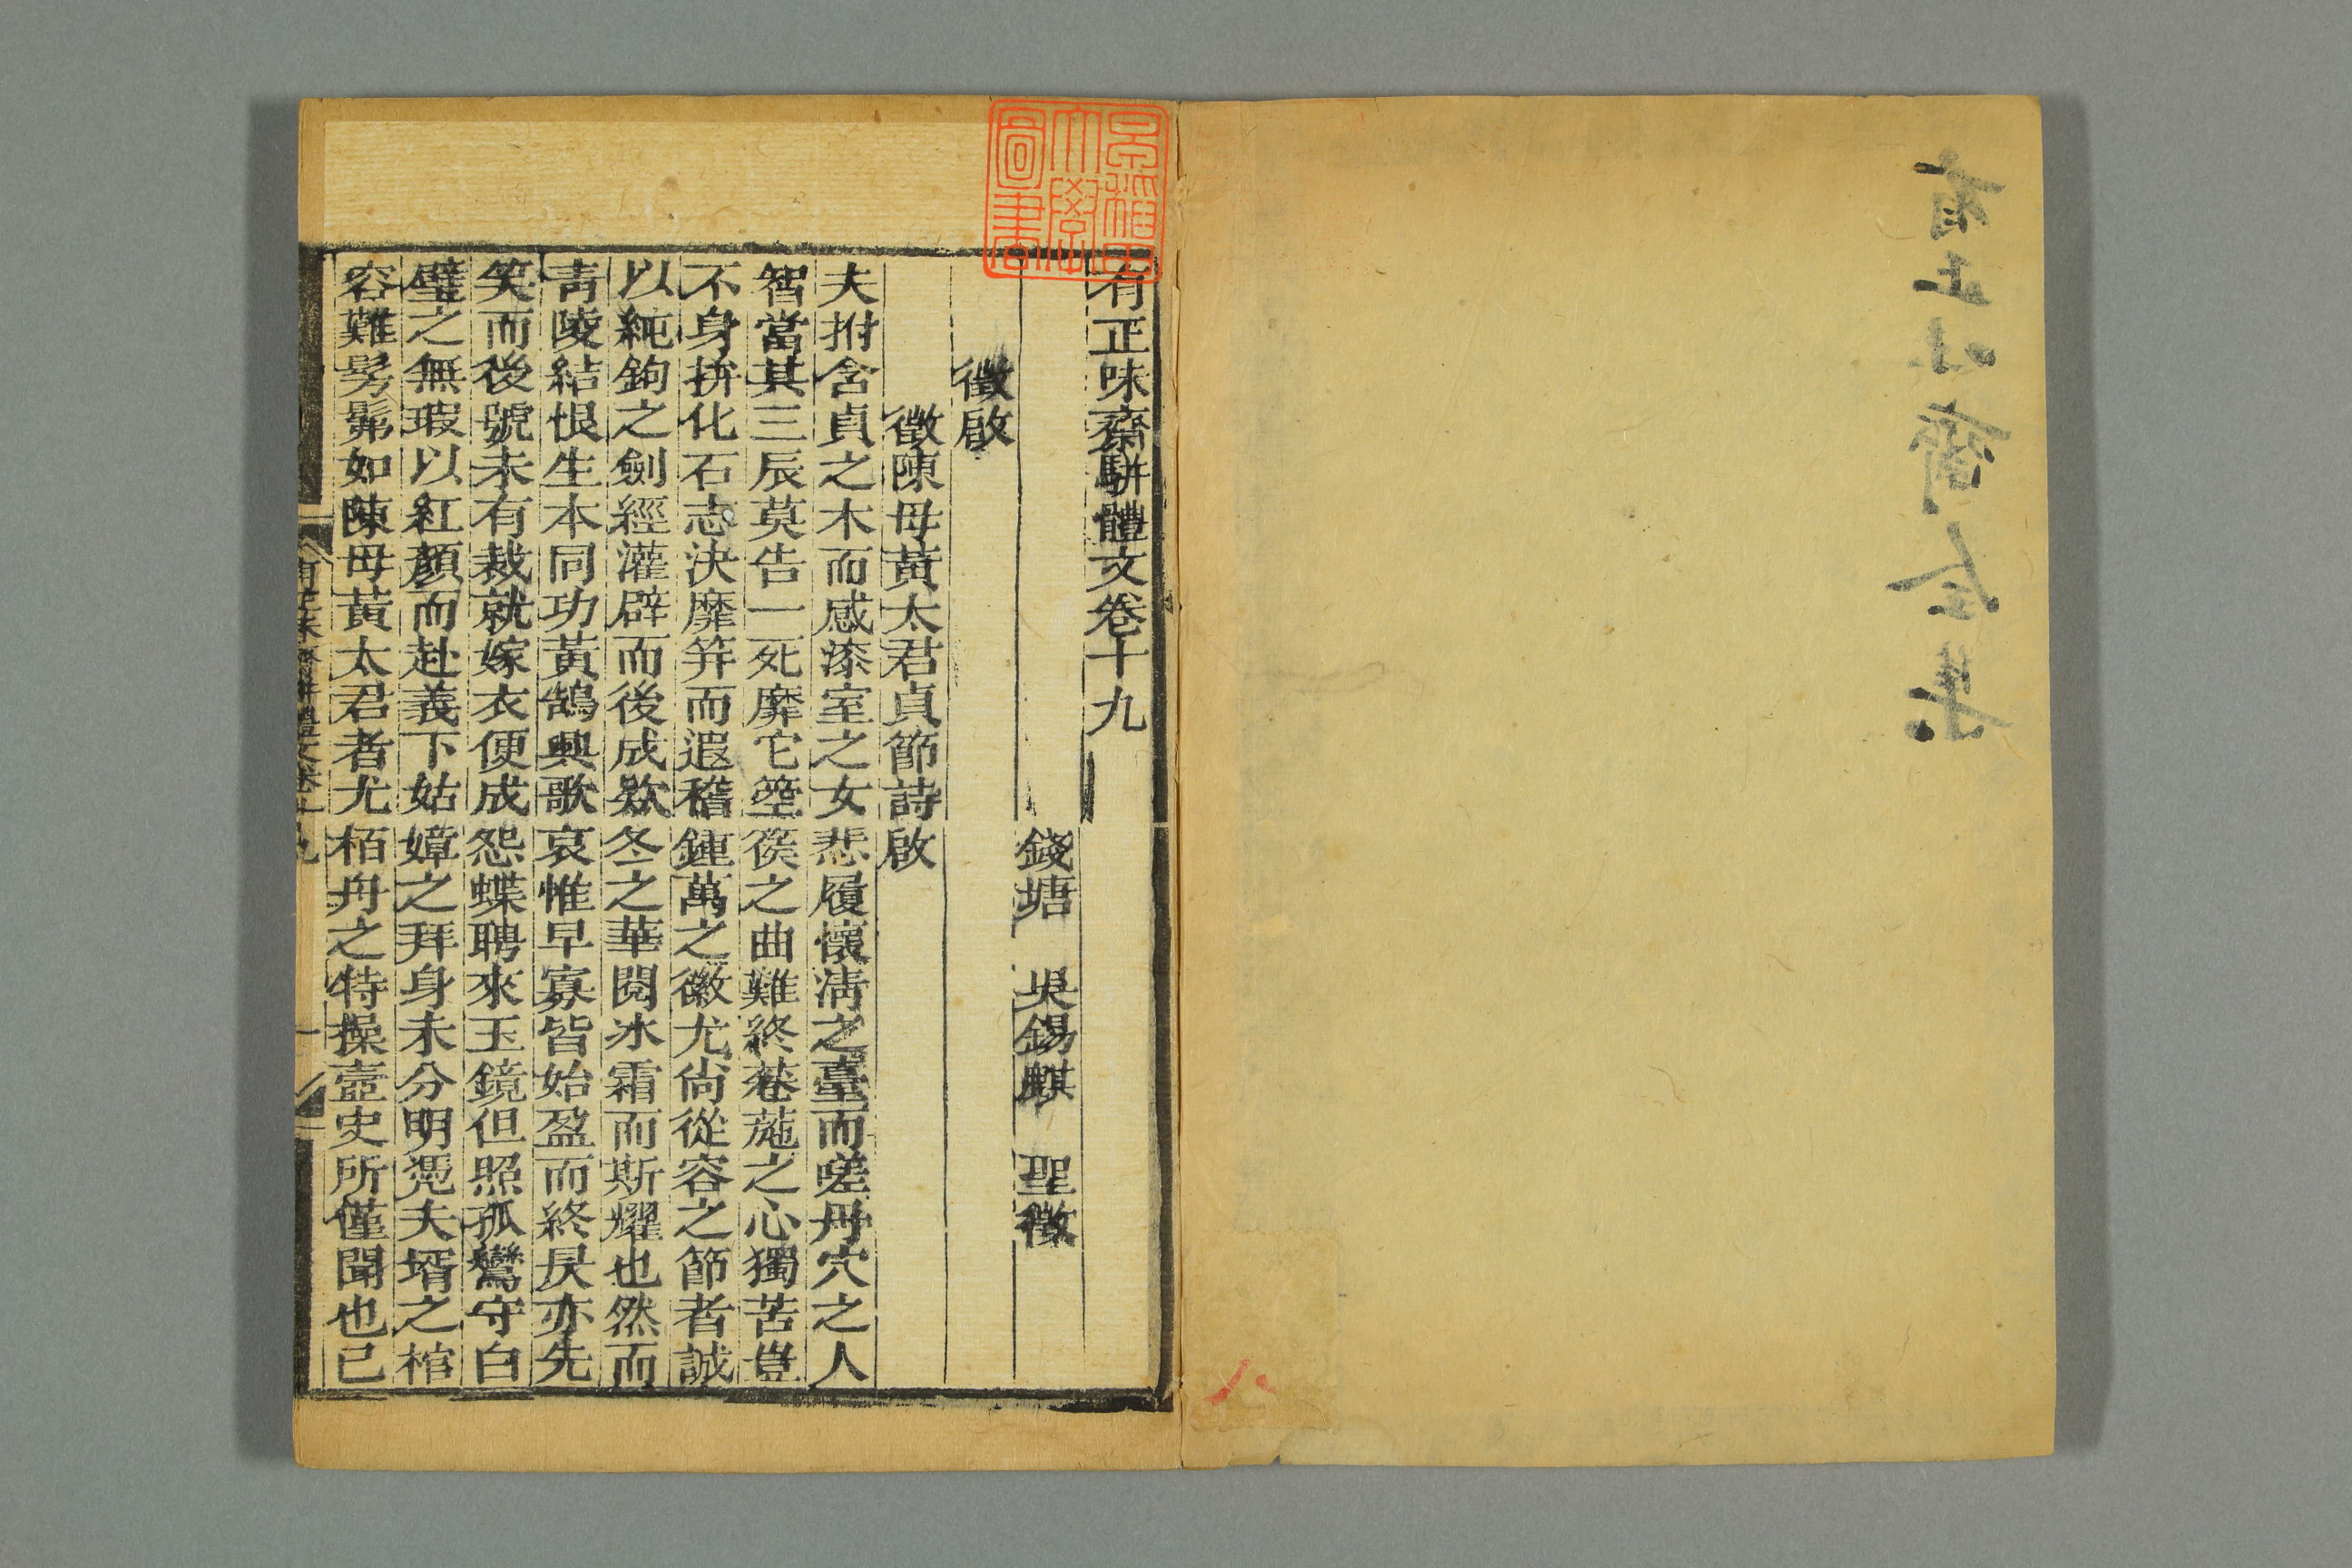 有正味齋全集
早稲田大學圖書
有正味齋駢體文卷十九
錢塘 吳錫麒 聖徵
徵啟
徵陳母黃太君貞節詩啟
夫拊含貞之木而感漆室之女悲履懷淸之臺而嗟丹穴之人
智當其三辰莫告一死靡它箜篌之曲難終菤葹之心獨苦豈
不身拚化石志決靡笄而遐稽鍾萬之徽尤尙從容之節者誠
以純鉤之劍經灌辟而後成欵冬之華閱冰霜而斯燿也然而
靑陵結恨生本同功黃鵠興歌哀惟早寡皆始盈而終昃亦先
笑而後號未有裁就嫁衣便成怨蝶聘來玉鏡但照孤鸞守白
璧之無瑕以紅顏而赴義下姑嫜之拜身未分明凭夫壻之棺
容難髣髴如陳母黃太君者尤栢舟之特操壼史所僅聞也已
有正味齋駢體文卷十九
一